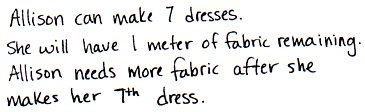 Allison can make 7 dresses.
She will have 1 meter of fabric remaining.
Allison needs more fabric after she
makes her 7th dress.